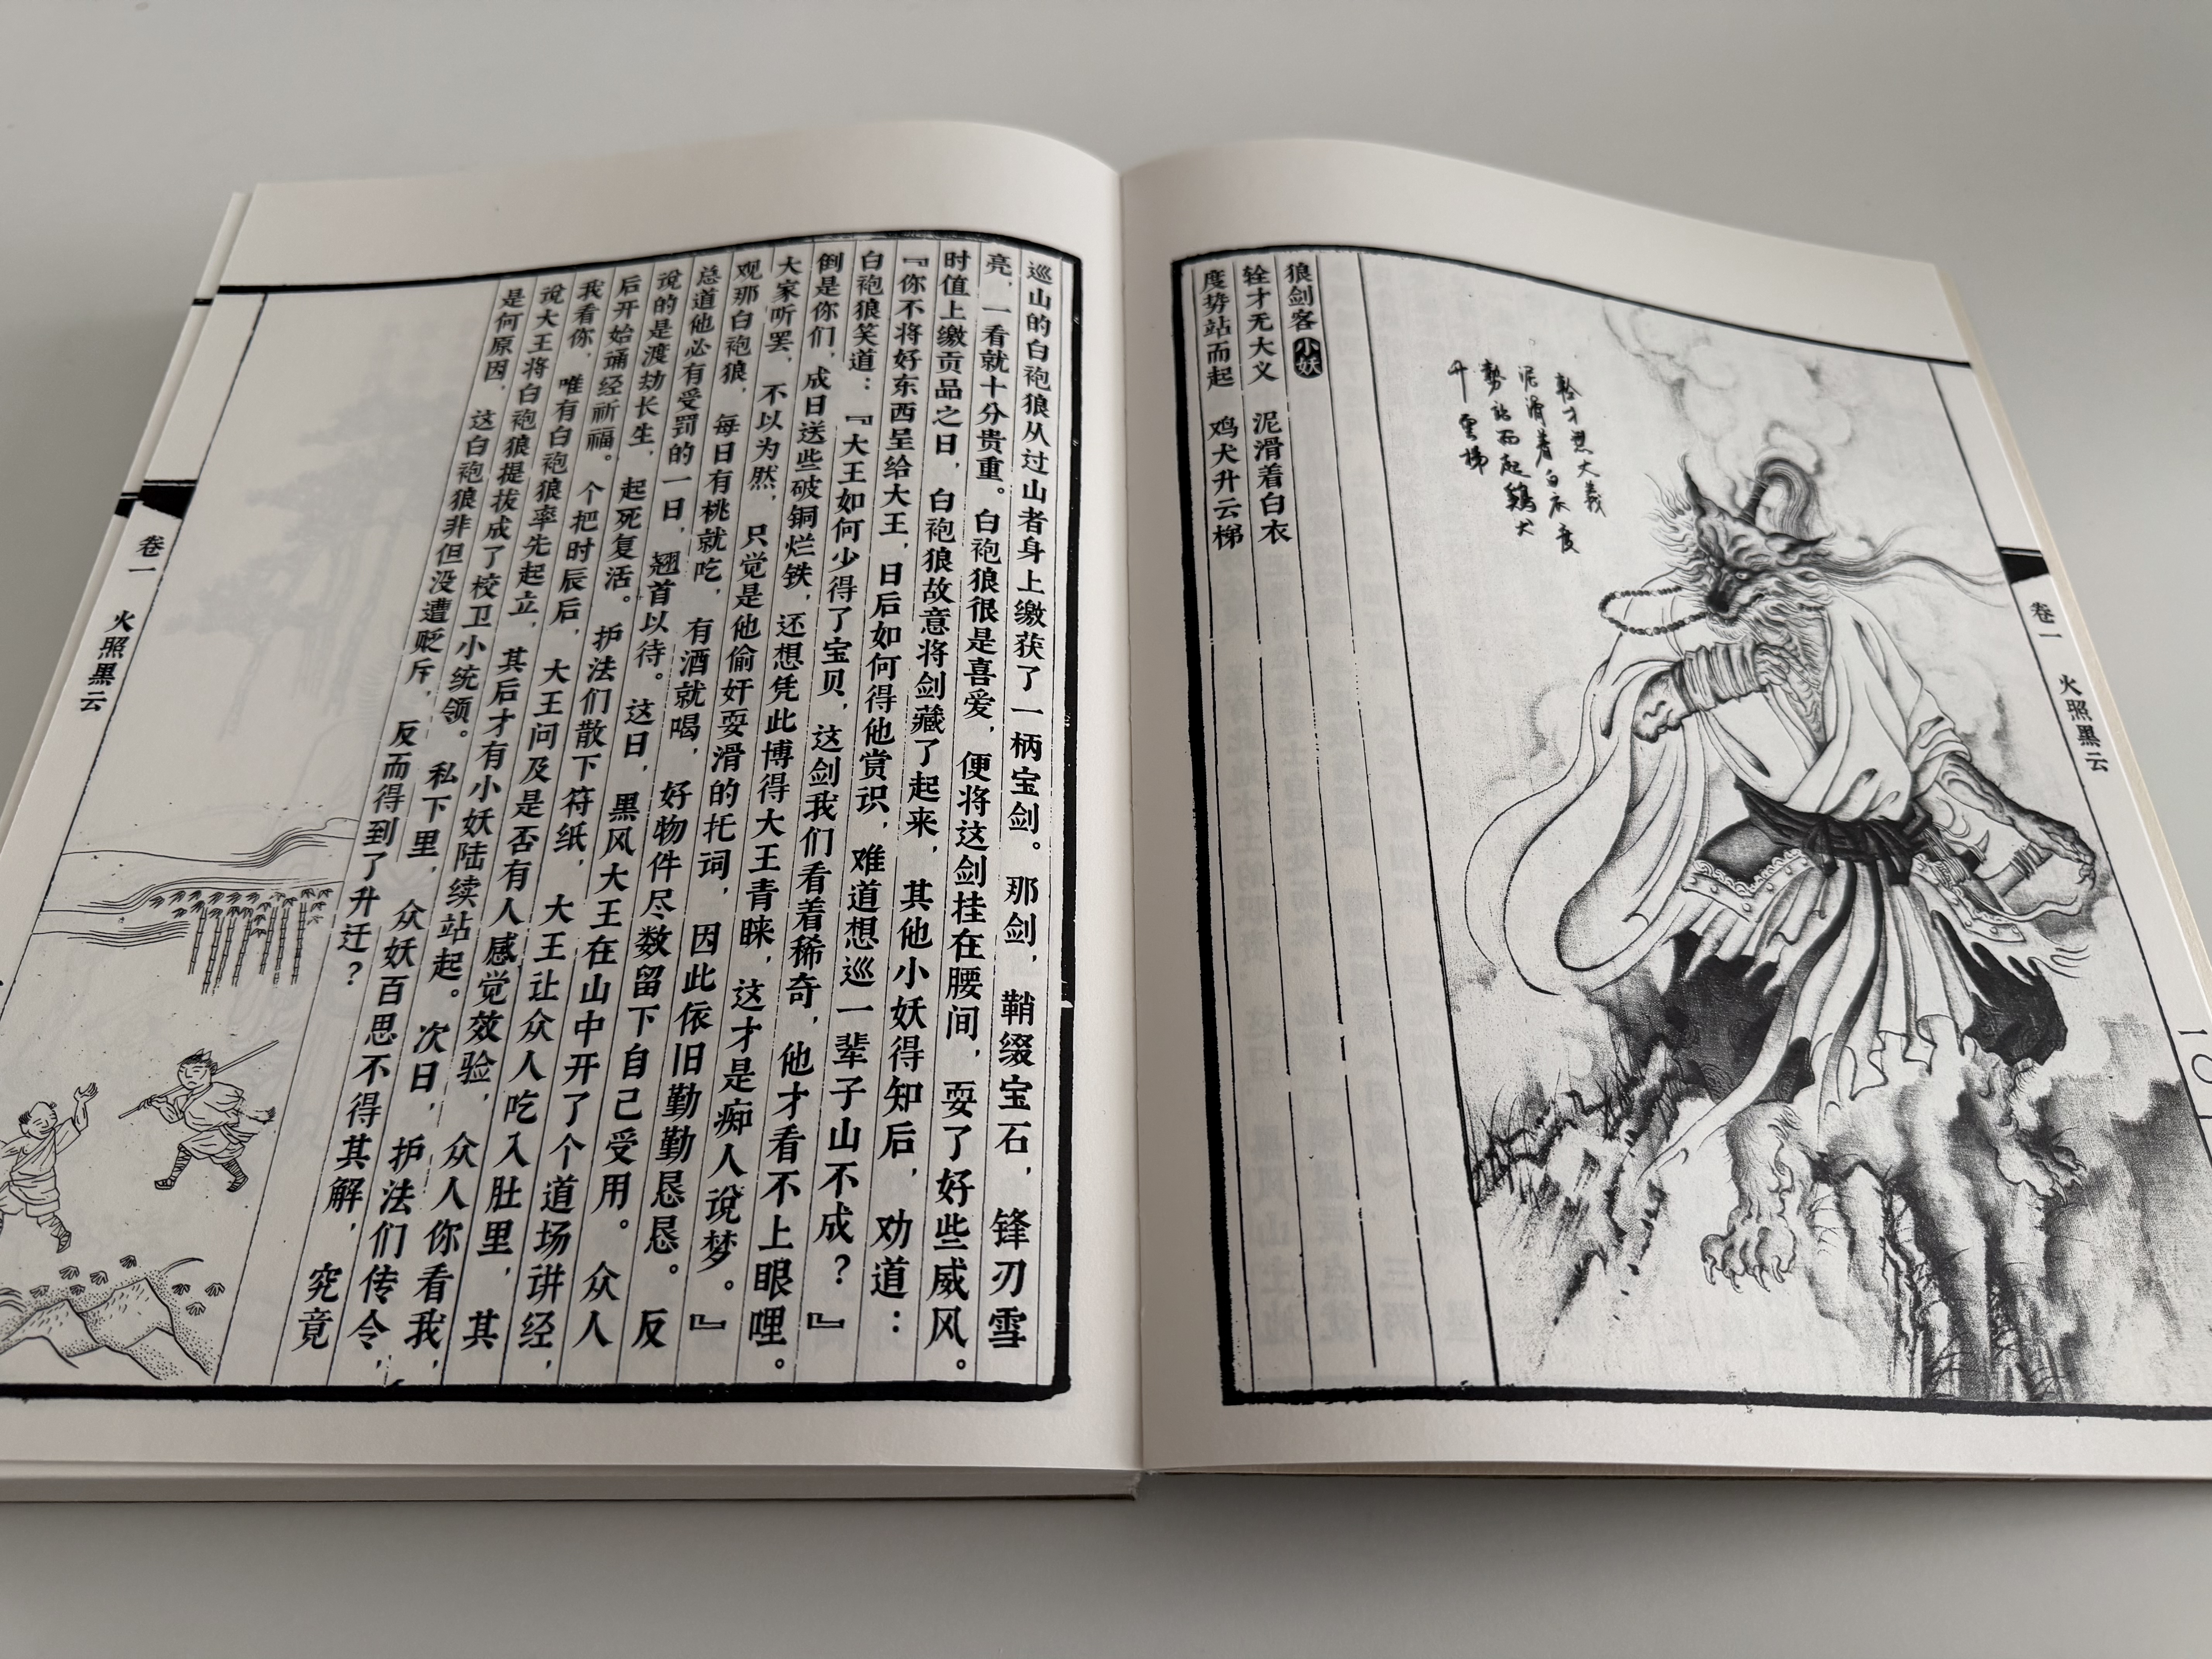 卷一 火照黑云
輇才無大義
泥滑着白衣度
勢站而起鷄犬
升雲梯
狼剑客 小妖
辁才无大义 泥滑着白衣
度势站而起 鸡犬升云梯
巡山的白袍狼从过山者身上缴获了一柄宝剑。那剑，鞘缀宝石，锋刃雪
亮，一看就十分贵重。白袍狼很是喜爱，便将这剑挂在腰间，耍了好些威风。
时值上缴贡品之日，白袍狼故意将剑藏了起来，其他小妖得知后，劝道：
『你不将好东西呈给大王，日后如何得他赏识，难道想巡一辈子山不成？』
白袍狼笑道：『大王如何少得了宝贝，这剑我们看着稀奇，他才看不上眼哩。
倒是你们，成日送些破铜烂铁，还想凭此博得大王青睐，这才是痴人说梦。』
大家听罢，不以为然，只觉是他偷奸耍滑的托词，因此依旧勤勤恳恳。反
观那白袍狼，每日有桃就吃，有酒就喝，好物件尽数留下自己受用。众人
总道他必有受罚的一日，翘首以待。这日，黑风大王在山中开了个道场讲经，
说的是渡劫长生，起死复活。护法们散下符纸，大王让众人吃入肚里，其
后开始诵经祈福。个把时辰后，大王问及是否有人感觉效验，众人你看我，
我看你，唯有白袍狼率先起立，其后才有小妖陆续站起。次日，护法们传令，
说大王将白袍狼提拔成了校卫小统领。私下里，众妖百思不得其解，究竟
是何原因，这白袍狼非但没遭贬斥，反而得到了升迁？
卷一 火照黑云